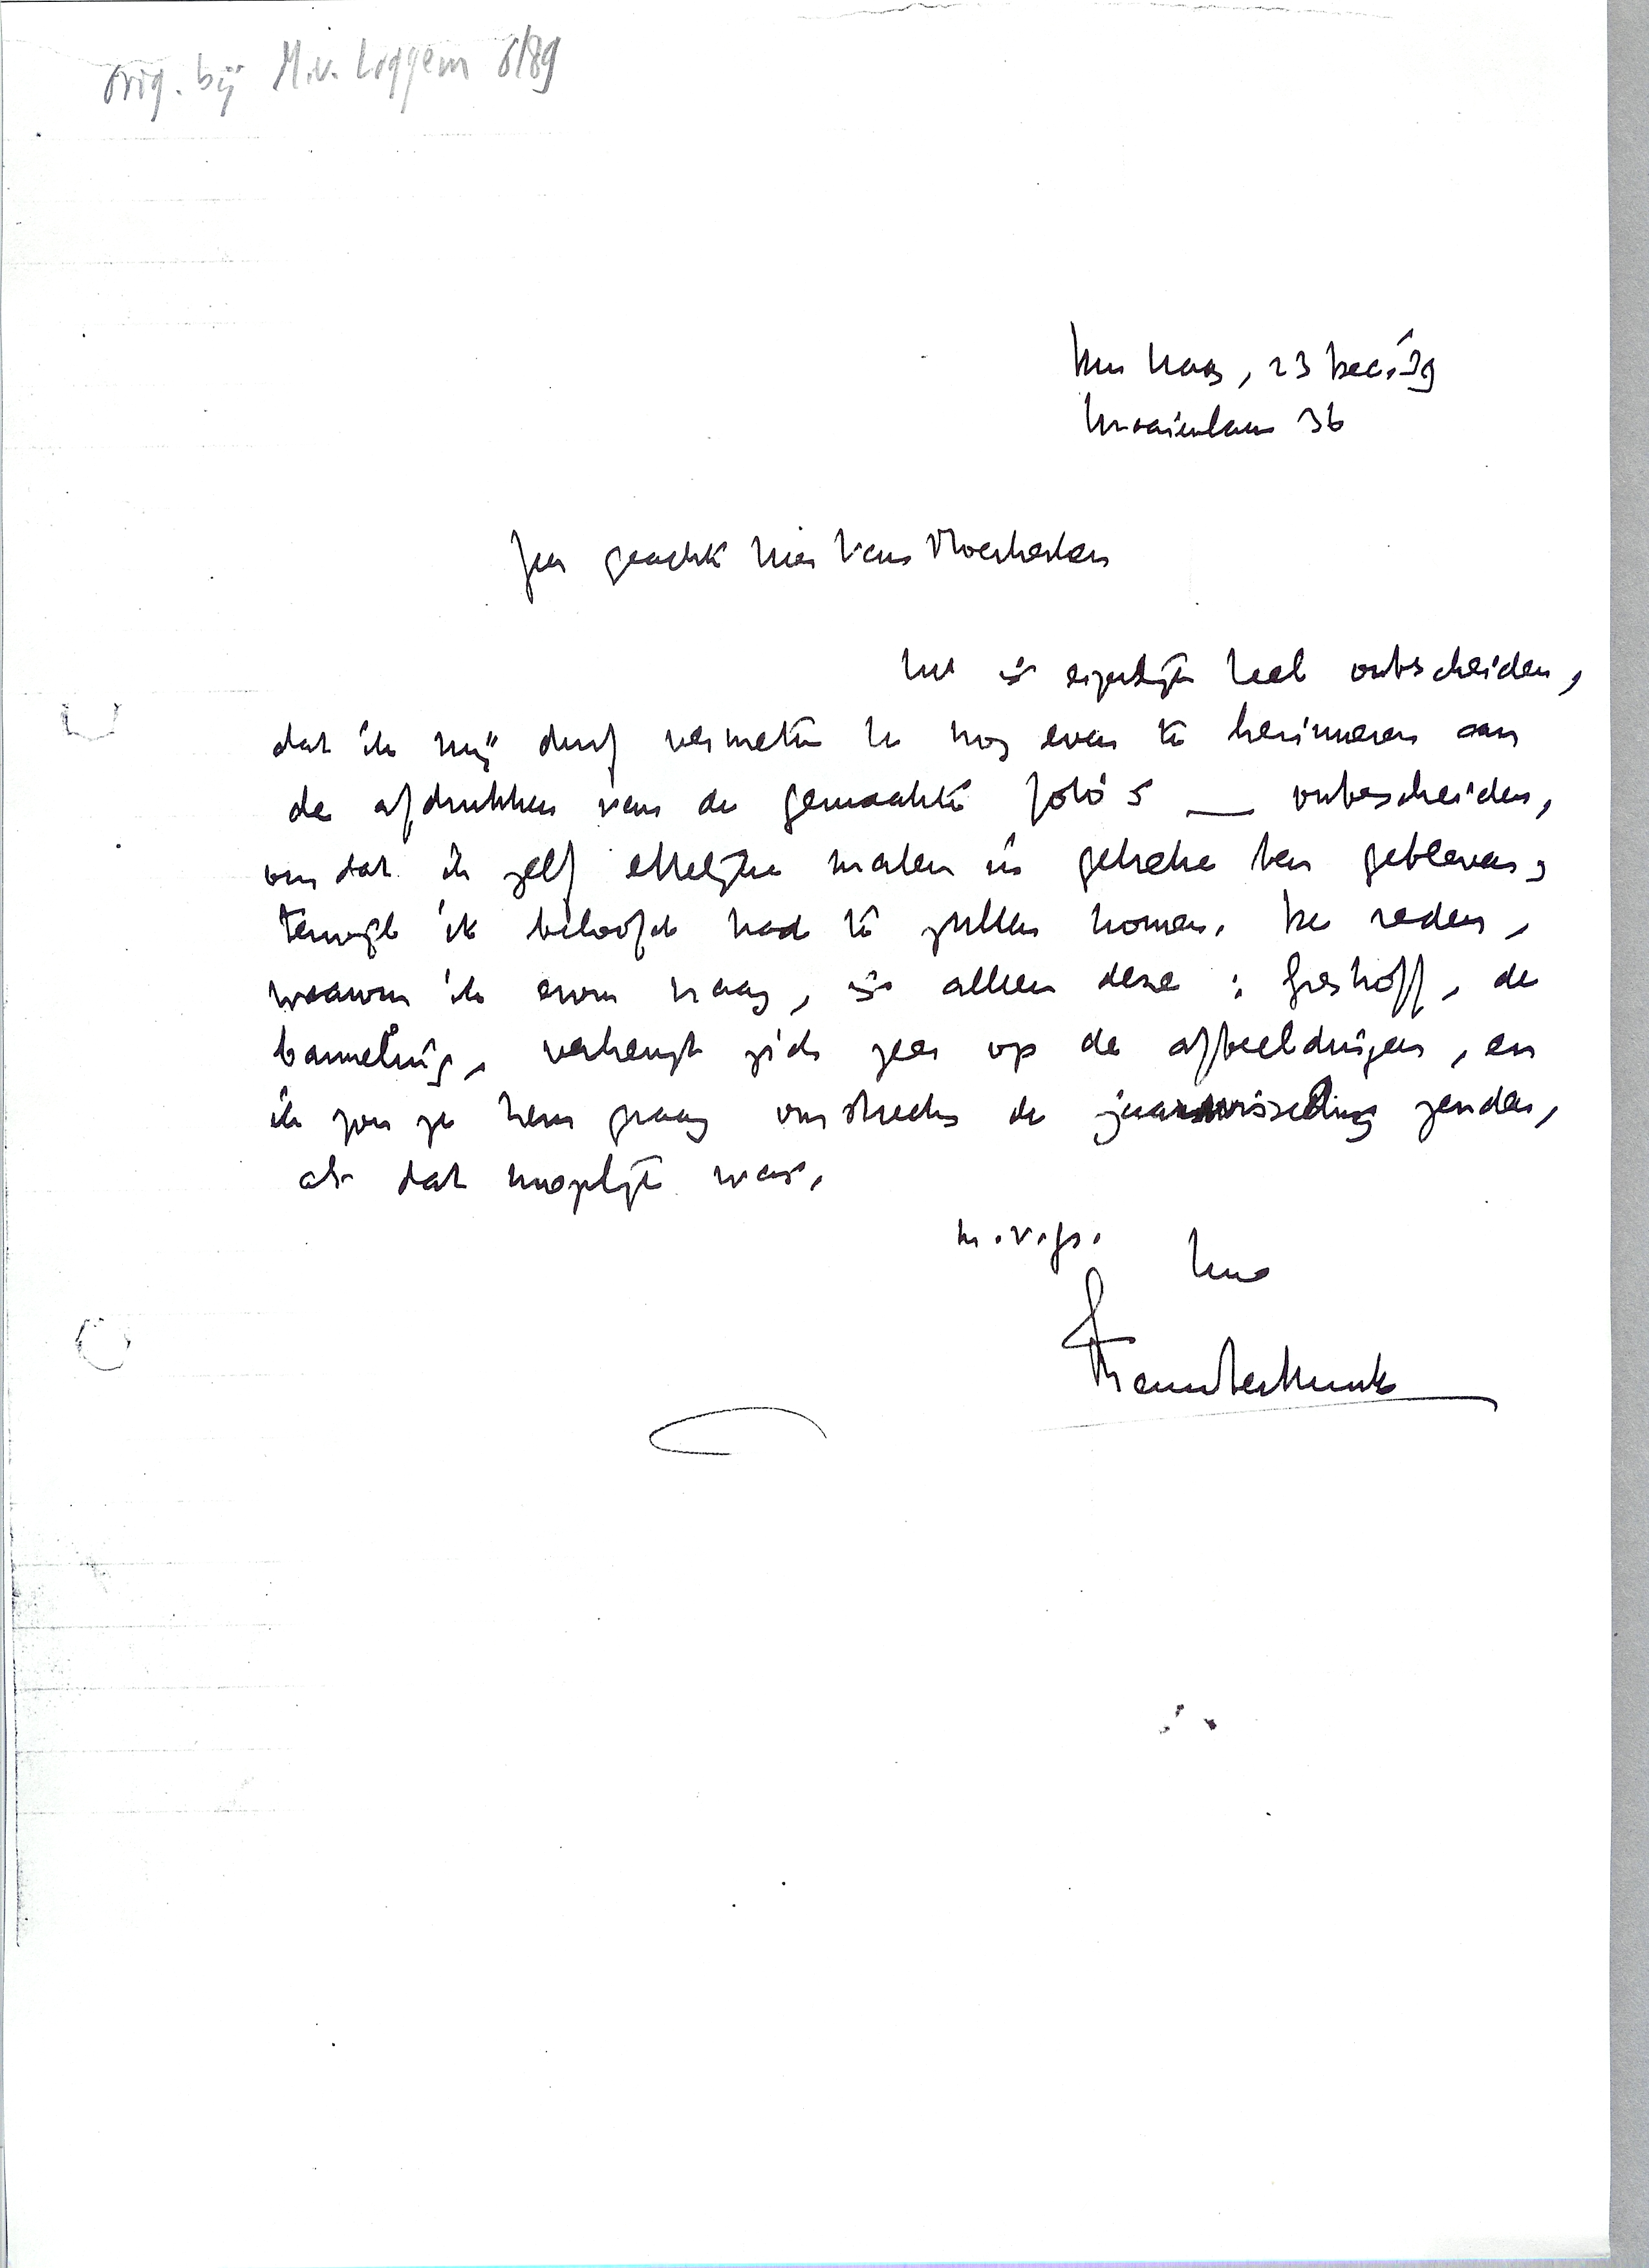 orig. bij M.v. Loggem 6/89
Den Haag, 23 Dec. '39
Kraaienlaan 36
Zeer geachte Heer Van Moerkerken
Het is eigenlijk heel onbescheiden,
dat ik mij durf vermeten U nog even te herinneren aan
de afdrukken van de gemaakte foto's — onbescheiden,
omdat ik zelf ettelijke malen in gebreke ben gebleven,
terwijl ik beloofd had te zullen komen. De reden,
waarom ik erom vraag, is alleen deze: Greshoff, de
banneling, verheugt zich zeer op de afbeeldingen, en
ik zou ze hem graag omstreeks de jaarwisseling zenden,
als dat mogelijk was.
m.v.gr. Uw